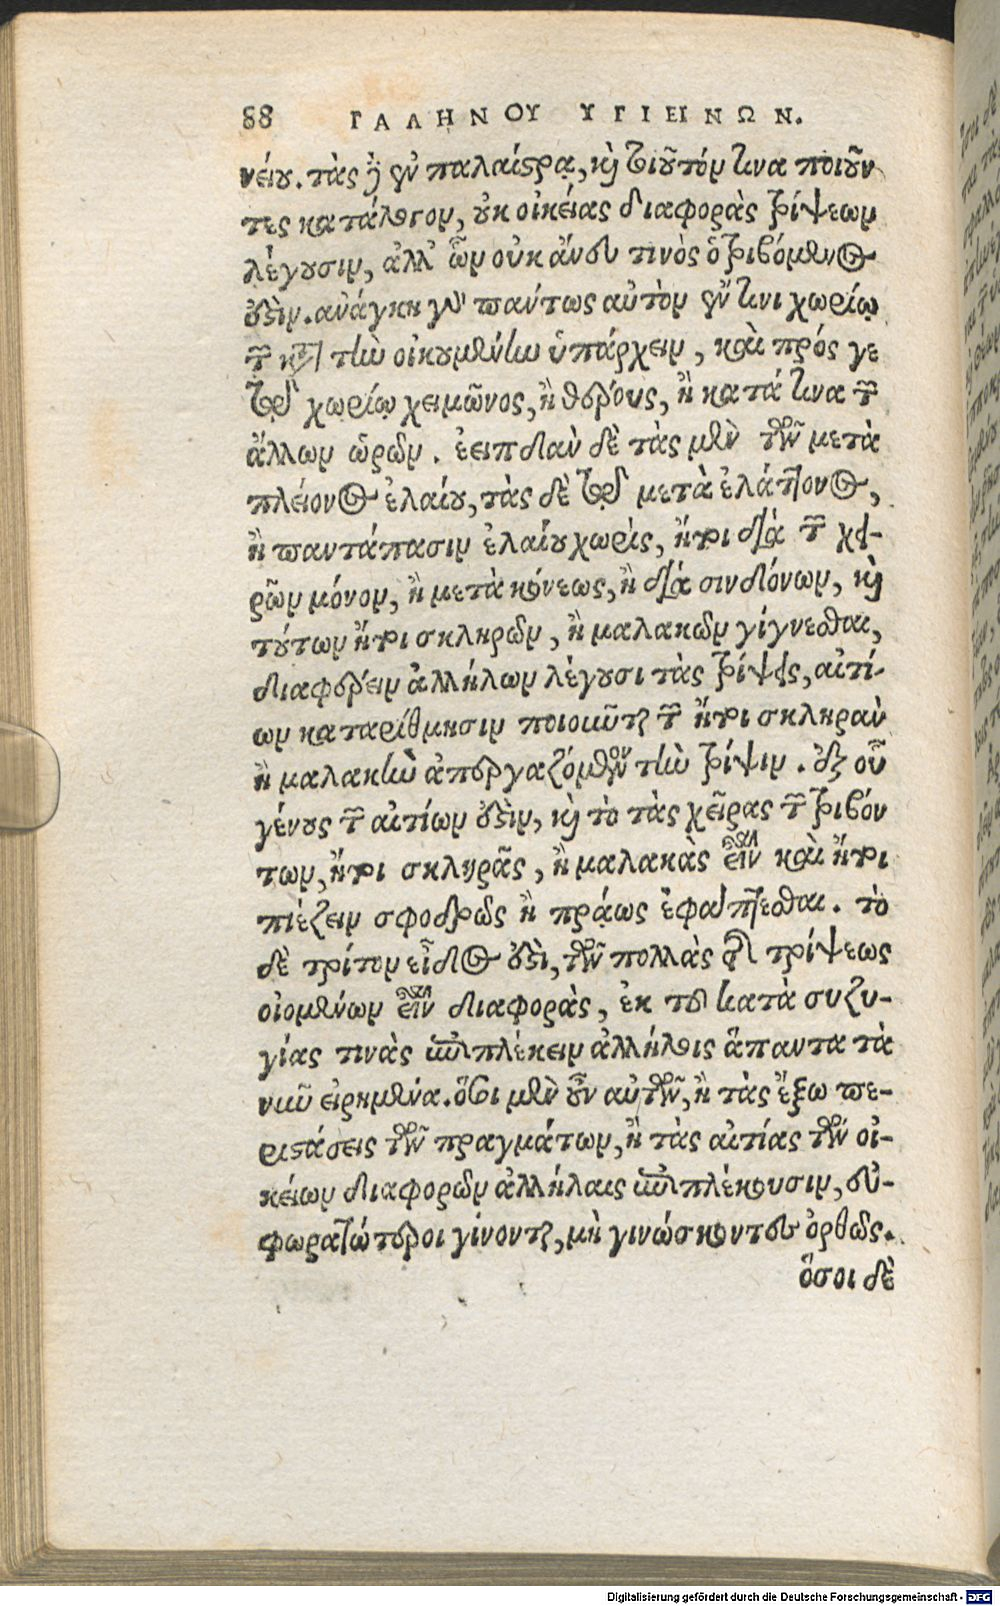 88 ΓΑΛΗΝΟΥ ΥΓΙΕΙΝΩΝ.
νείου. τὰς δ' ἐν παλαίστρᾳ, καὶ τοιοῦτόν τινα ποιοῦν
τες κατάλογον, οὐκ οἰκείας διαφορὰς τρίψεων
λέγουσιν, ἀλλ' ὧν οὐκ ἄνευ τινὸς ὁ τριβόμενος
ἐστὶν. ἀνάγκη γὰρ πάντως αὐτὸν ἐν τινι χωρίῳ
τῶν κατὰ τὴν οἰκουμένην ὑπάρχειν, καὶ πρός γε
τῷ χωρίῳ χειμῶνος, ἢ θέρους, ἢ κατά τινα τῶν
ἄλλων ὡρῶν. ἐπειδὰν δὲ τὰς μὲν τῶν μετὰ
πλείονος ἐλαίου, τὰς δὲ τῷ μετὰ ἐλάττονος,
ἢ παντάπασιν ἐλαίου χωρὶς, ἤτοι διὰ τῶν χει-
ρῶν μόνον, ἢ μετὰ κόνεως, ἢ διὰ σινδόνων, καὶ
τούτων ἤτοι σκληρῶν, ἢ μαλακῶν γίγνεσθαι,
διαφέρειν ἀλλήλων λέγουσι τὰς τρίψεις, αἰτί-
ων καταρίθμησιν ποιοῦνται τῶν ἤτοι σκληρὰν
ἢ μαλακὴν ἀπεργαζομένων τὴν τρίψιν. ἐξ οὗ
γένους τῶν αἰτίων ἐστὶν, καὶ τὸ τὰς χεῖρας τῶν τριβόν
των, ἤτοι σκληρᾶς, ἢ μαλακὰς εἶναι καὶ ἤτοι
πιέζειν σφοδρῶς ἢ πράως ἐφάπτεσθαι. τὸ
δὲ τρίτον εἶδος ἐστὶ, τῶν πολλὰς τῆς τρίψεως
οἰομένων εἶναι διαφορὰς, ἐκ τοῦ κατὰ συζυ-
γίας τινὰς ἐπιπλέκειν ἀλλήλοις ἅπαντα τὰ
νῦν εἰρημένα. ὅσοι μὲν οὖν αὐτῶν, ἢ τὰς ἔξω πε-
ριστάσεις τῶν πραγμάτων, ἢ τὰς αἰτίας τῶν οἰ-
κείων διαφορῶν ἀλλήλαις ἐπιπλέκουσιν, εὐ-
φωρατότεροι γίνονται, μὴ γινώσκοντες ὀρθῶς.
ὅσοι δὲ
Digitalisierung gefördert durch die Deutsche Forschungsgemeinschaft - DFG